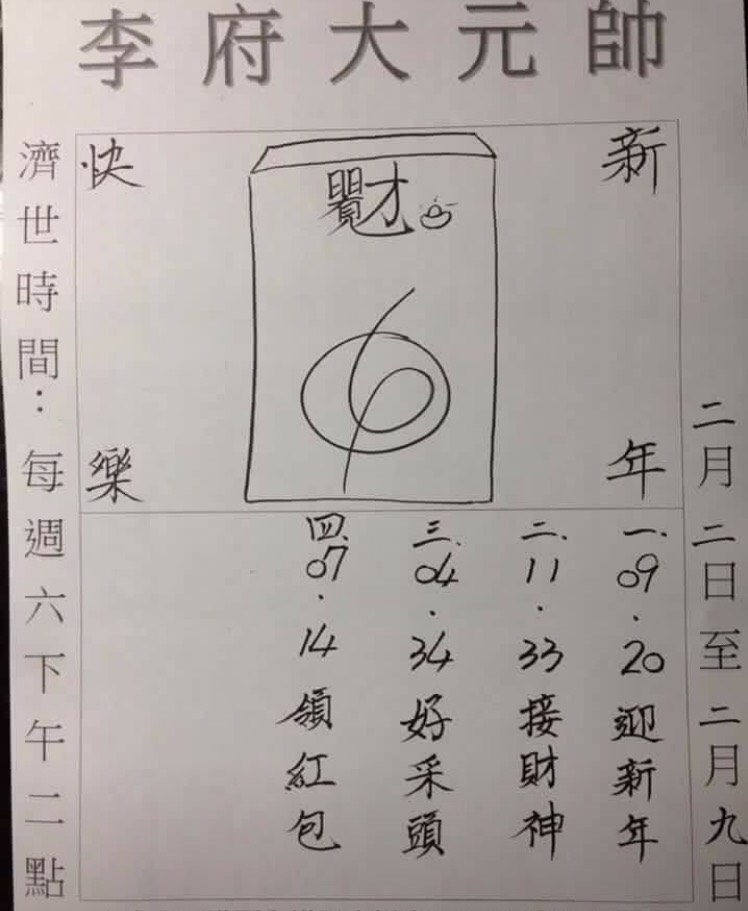 李府大元帥
二月二日至二月九日
新年
快樂
財
6
一.09.20迎新年
二.11.33接財神
三.04.34好采頭
四.07.14領紅包
濟世時間：每週六下午二點